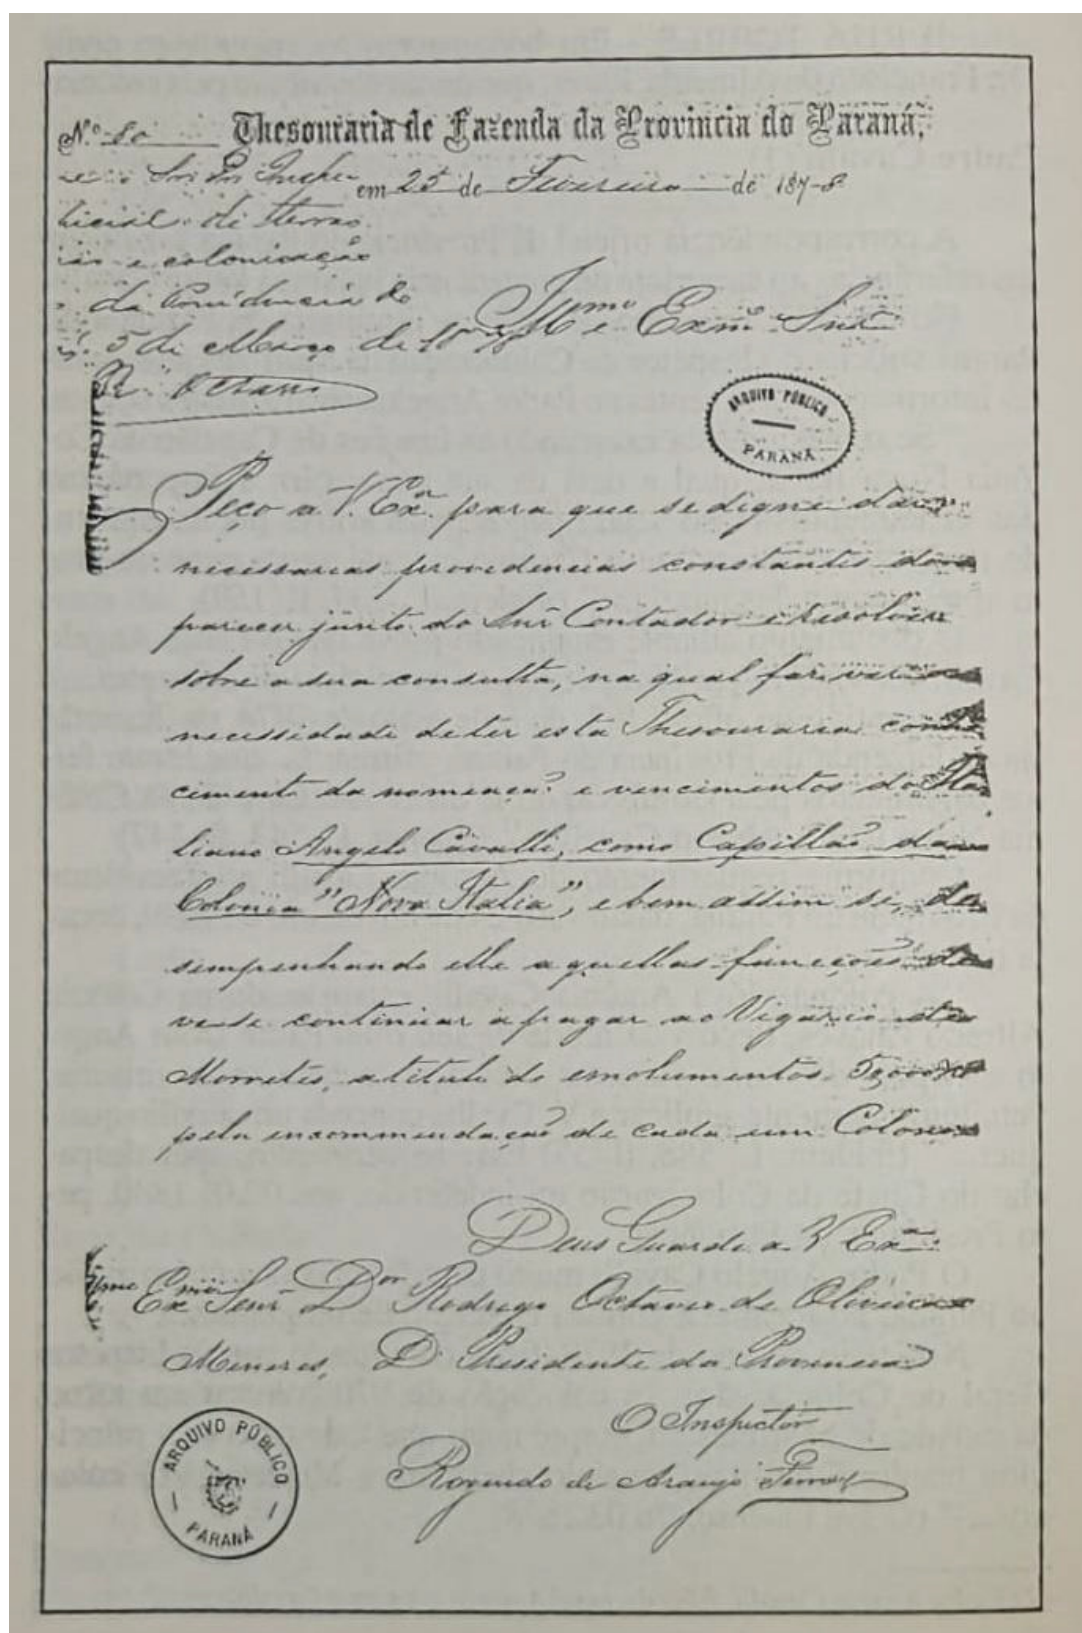 Nº 80 Thesouraria de Fazenda da Provincia do Paraná,
em 25 de Fevereiro de 1878
Snr Dr Inspe
ficial de terras
e colonisação
da Presidencia do
5 de Março de 1878
R. Octavio
Illmo e Exmo Snr
ARQUIVO PÚBLICO
PARANÁ
Peço a V. Exª para que se digne dar
necessarias providencias constantes do
parecer junto do Snr Contador e resolver
sobre a sua consulta, na qual faz ver a
necessidade de ter esta Thesouraria conhe
cimento da nomeação e vencimentos do Ita
liano Angelo Cavalli, como Capellão da
Colonia "Nova Italia", e bem assim se, de
sempenhando elle aquellas funcções de
ve-se continuar a pagar ao Vigario de
Morretes, a titulo de emolumentos
pela encommendação de cada um Colono
Deus Guarde a V Exª
Illmo Exmo Senr Dor Rodrigo Octavio de Oliveira
Menezes, D. Presidente da Provincia
O Inspector
Rogundo de Araujo Ferraz
ARQUIVO PÚBLICO
PARANÁ